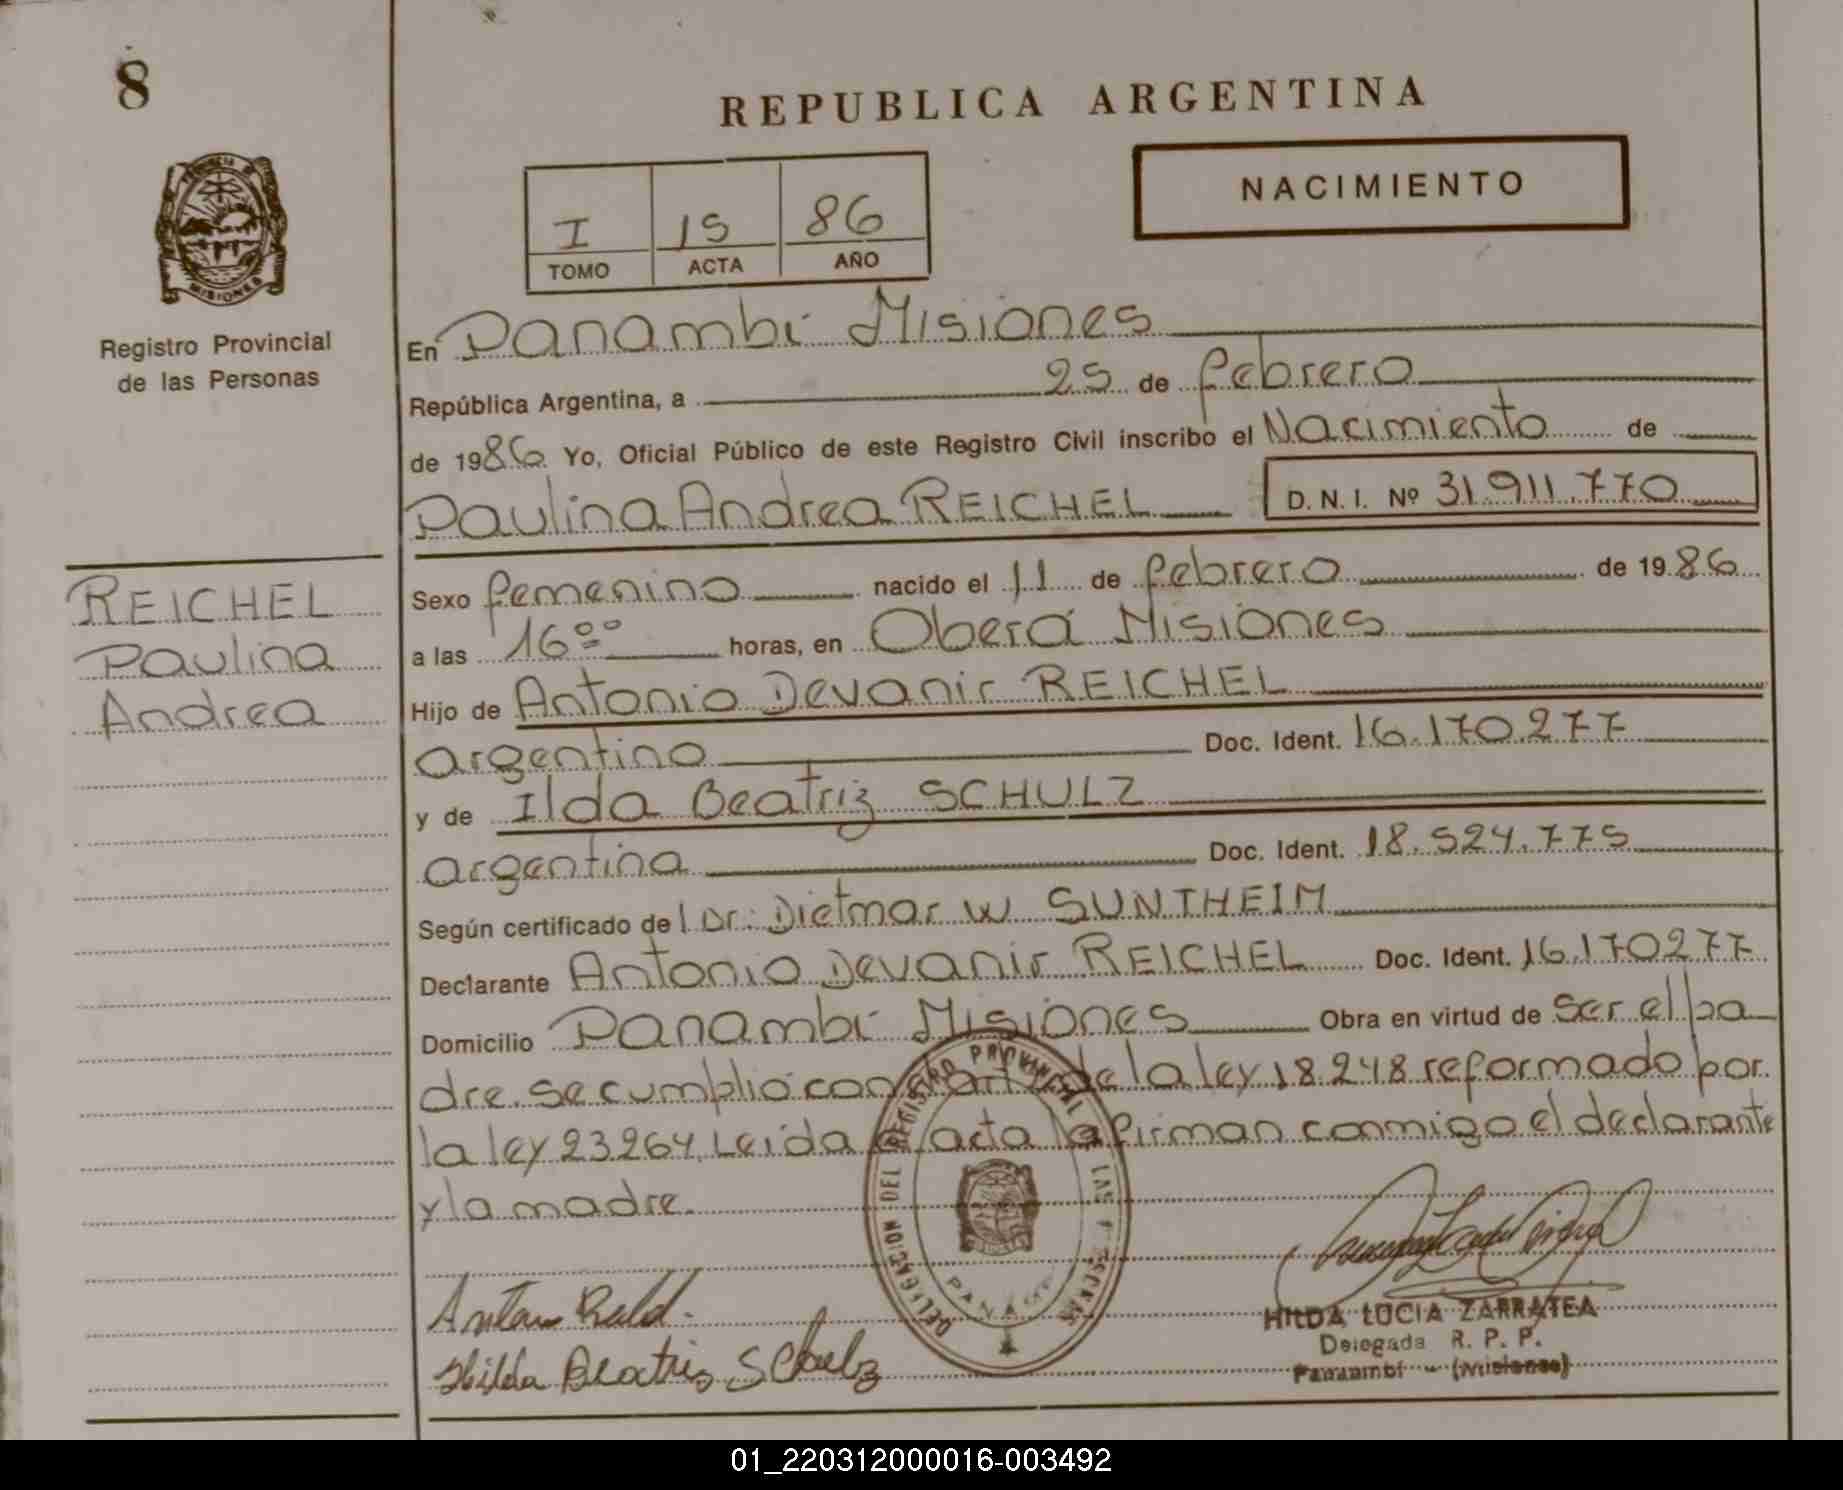 8
REPUBLICA ARGENTINA
NACIMIENTO
I 15 86
TOMO ACTA AÑO
MISIONES
Registro Provincial
de las Personas
En Panambí Misiones
República Argentina, a 25 de febrero
de 1986 Yo, Oficial Público de este Registro Civil inscribo el Nacimiento de
Paulina Andrea REICHEL D.N.I. Nº 31.911.770
REICHEL
Paulina
Andrea
Sexo femenino nacido el 11 de febrero de 1986
a las 16ºº horas, en Oberá Misiones
Hijo de Antonio Devanir REICHEL
argentino Doc. Ident. 16.170.277
y de Ilda Beatriz SCHULZ
argentina Doc. Ident. 18.524.775
Según certificado del Dr: Dietmar W SUNTHEIM
Declarante Antonio Devanir REICHEL Doc. Ident. 16.170277
Domicilio Panambí Misiones Obra en virtud de ser el pa
dre. se cumplió con art de la ley 18.248 reformado por
la ley 23264. Leída el acta la firman conmigo el declarante
y la madre.
DELEGACION DEL REGISTRO PROVINCIAL DE LAS PERSONAS
Hilda Beatris Schulz
HILDA LUCIA ZARRATEA
Delegada R. P. P.
Panambí - (Misiones)
01_220312000016-003492